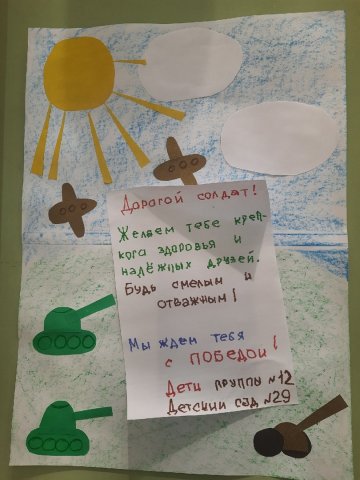 Дорогой солдат!
Желаем тебе креп-
кого здоровья и
надёжных друзей.
Будь смелым и
отважным!
Мы ждем тебя
с победой!
Дети группы №12
Детский сад №29